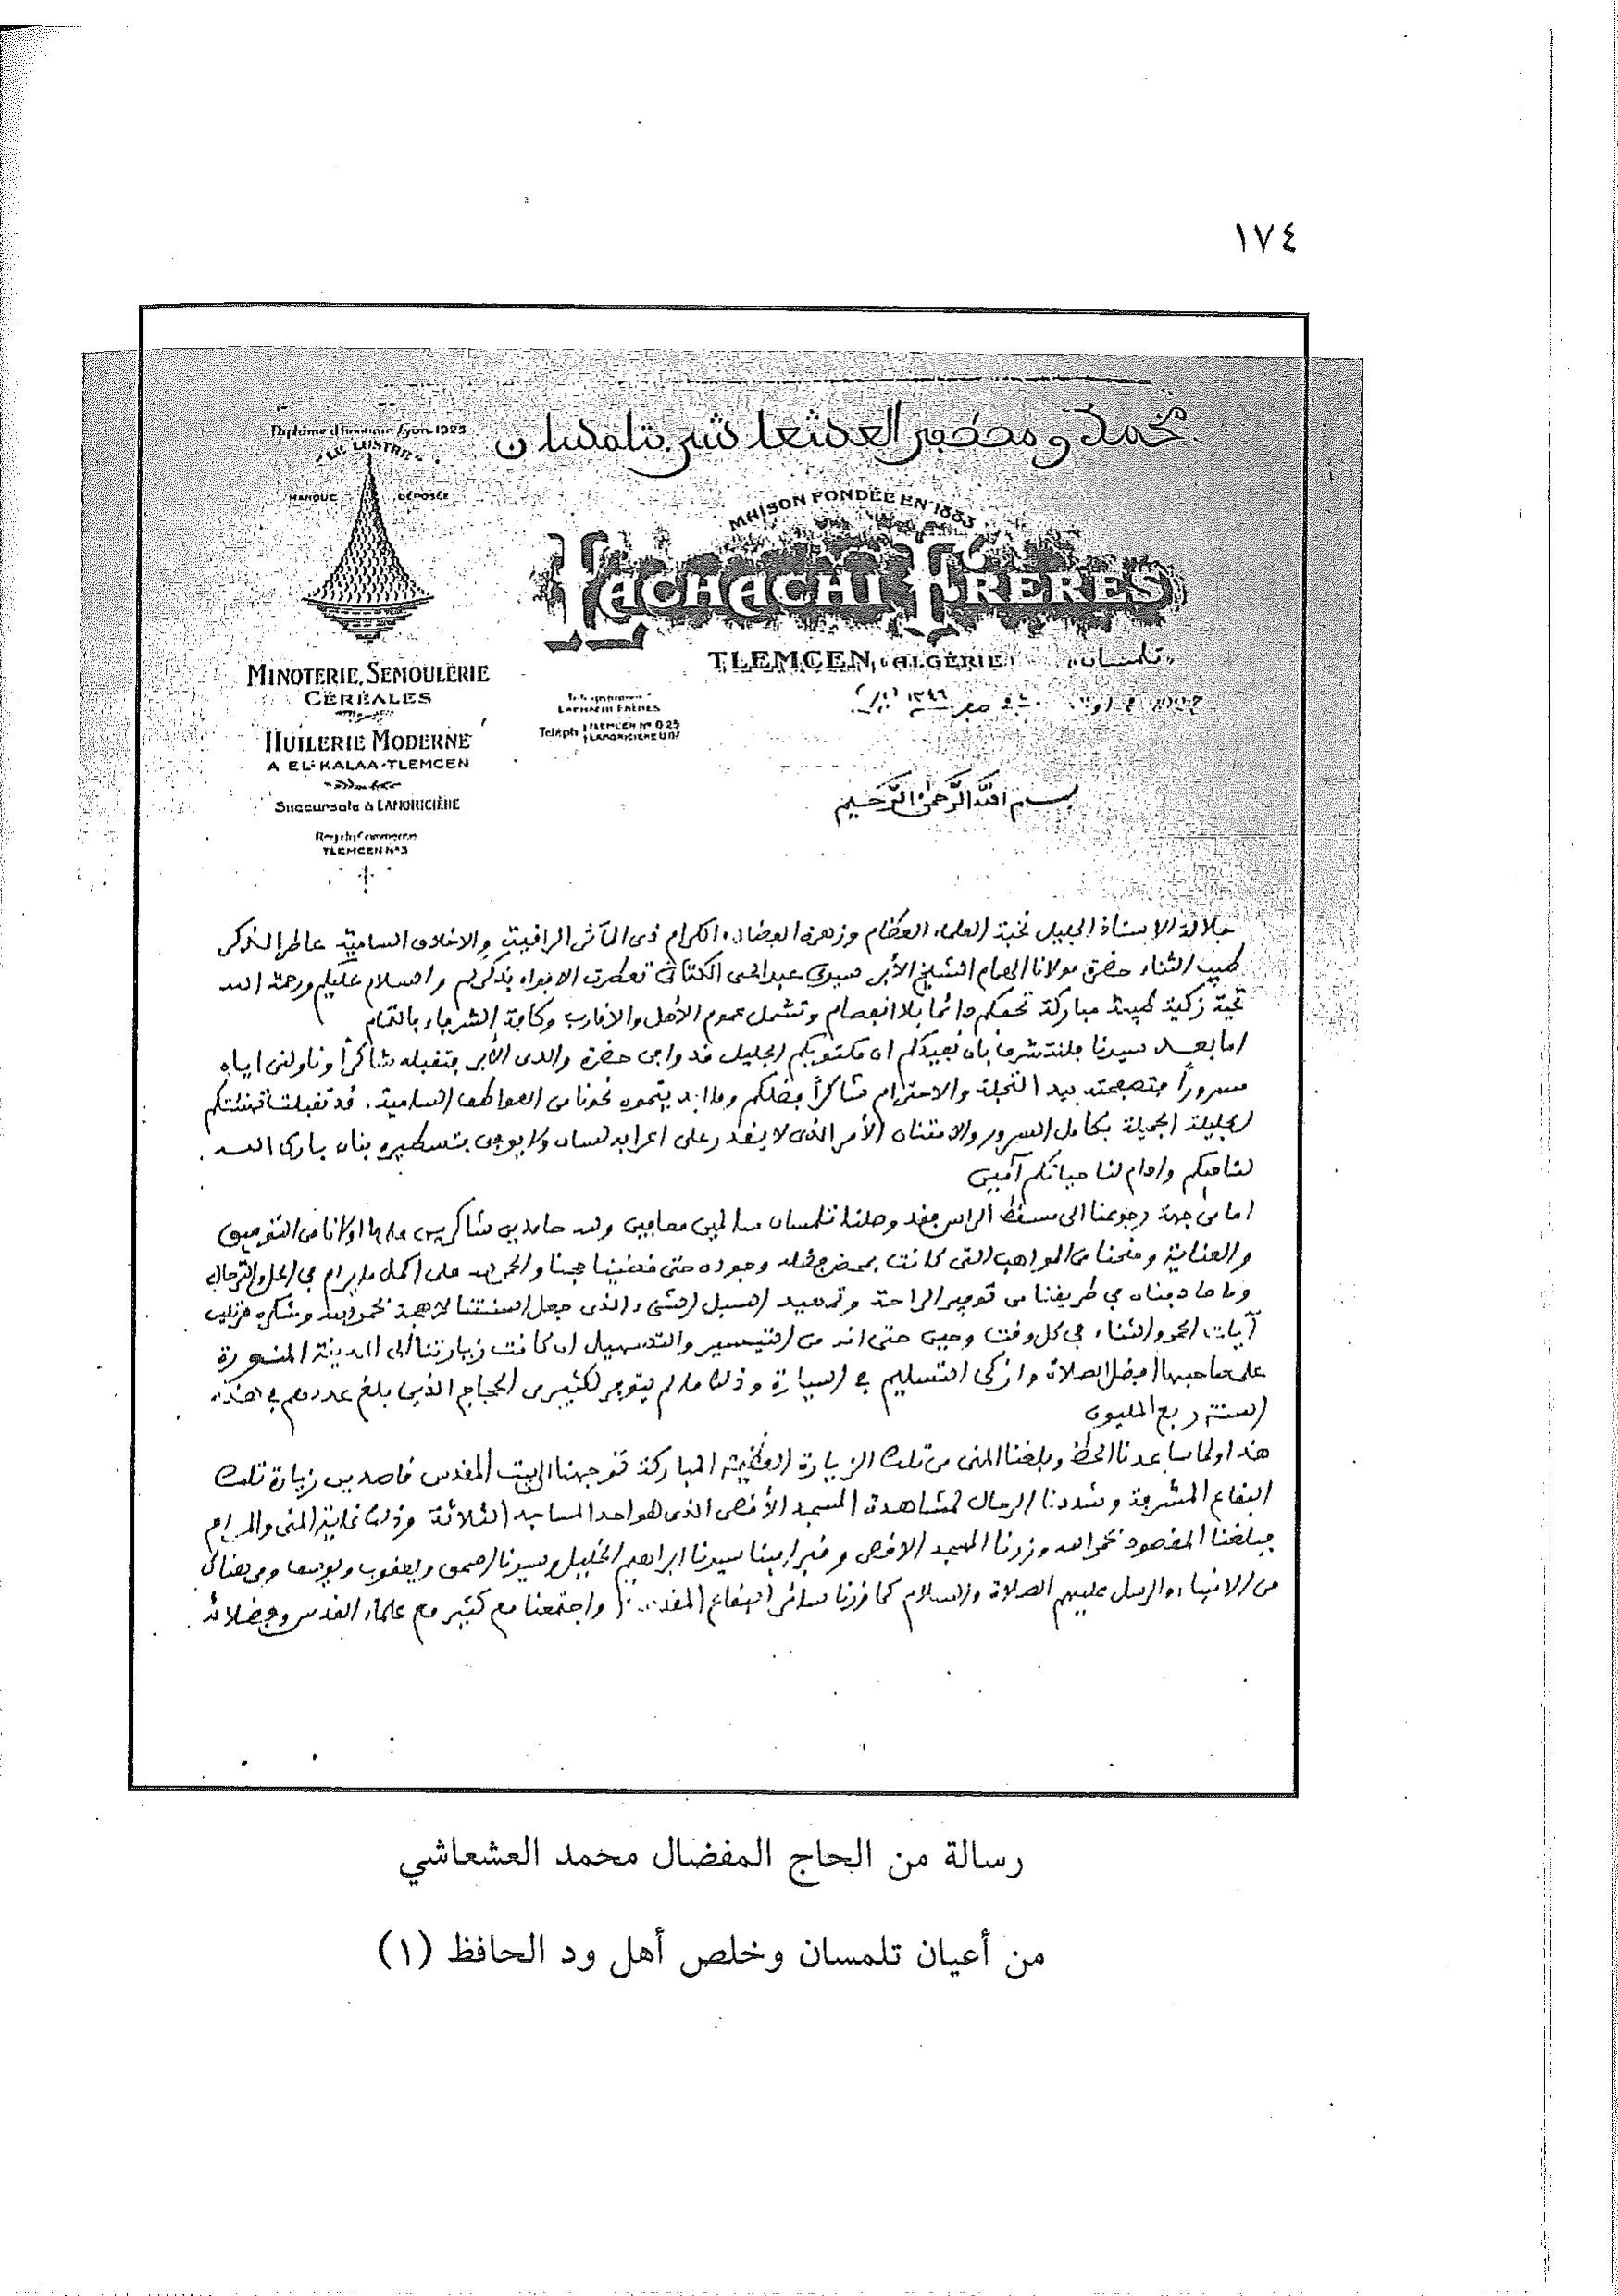 ١٧٤
محمد ومصطفى العشعاشي بتلمسان
Diplôme d'honneur Lyon 1923
"LE LUSTRE"
MARQUE DÉPOSÉE
MAISON FONDÉE EN 1883
LACHACHI FRÈRES
TLEMCEN, (ALGÉRIE) تلمسان
MINOTERIE, SEMOULERIE
CÉRÉALES
HUILERIE MODERNE
A EL-KALAA-TLEMCEN
Succursale à LAMORICIÈRE
Reg. du Commerce
TLEMCEN Nº 3
LACHACHI FRÈRES
Téléph TLEMCEN Nº 0.25
LAMORICIÈRE
صفر ١٣٤٦
بسم الله الرحمن الرحيم
جلالة الاستاذ الجليل نخبة العلماء العظام وزهرة الفضلاء الكرام ذى المآثر الراقية والاخلاق السامية عاطر الذكر
طيب الثناء حضرة مولانا الهمام الشيخ الأبر سيدي عبد الحى الكتانى تعطرت الافواه بذكركم والسلام عليكم ورحمة الله
تحية زكية طيبة مباركة تحفكم دائما بلا انفصام وتشمل عموم الأهل والاقارب وكافة الشرفاء بالتمام
اما بعد سيدنا فلنتشرف بأن نفيدكم ان مكتوبكم الجليل قد وافى حضرة والدى الأبر فتقبله شاكراً وناولنى اياه
مسروراً فتصفحته بيد التجلة والاحترام شاكراً فضلكم وما تبدونه نحونا من العواطف السامية. قد تقبلت تهنئتكم
الجليلة الجميلة بكامل السرور والامتنان الأمر الذى لا يقدر على اعرابه لسان ولا يوفى بتسطيره بنان بارك الله
لنا فيكم وادام لنا حياتكم آمين
اما من جهة رجوعنا الى مسقط الرأس فقد وصلنا تلمسان سالمين معافين ولله حامدين شاكرين على ما اولانا من التوفيق
والعناية ومنحنا من المواهب التى كانت بمحض فضله وجوده حتى قضينا حجنا والحمد لله على اكمل ما يرام فى الحل والترحال
وما صادفناه فى طريقنا من توفير الراحة وتمهيد السبل الشىء الذى جعل السنتنا لاهجة بحمد الله وشكره مرتلين
آيات الحمد والثناء فى كل وقت وحين حتى انه من التيسير والتسهيل ان كانت زيارتنا الى المدينة المنورة
على صاحبها افضل الصلاة وازكى التسليم فى السيارة وذلك ما لم يتوفر لكثير من الحجاج الذين بلغ عددهم فى هذه
السنة ربع المليون
هذا ولما ساعدنا الحظ وبلغنا المنى من تلك الزيارة العظيمة المباركة توجهنا الى بيت المقدس قاصدين زيارة تلك
البقاع المشرفة وشددنا الرحال لمشاهدة المسجد الأقصى الذى هو احد المساجد الثلاثة وذلك غاية المنى والمرام
فبلغنا المقصود بحمد الله وزرنا المسجد الاقصى وقبر ابينا سيدنا ابراهيم الخليل وسيدنا اسحق ويعقوب ويوسف ومن هناك
من الانبياء والرسل عليهم الصلاة والسلام كما زرنا سائر البقاع المقدسة واجتمعنا مع كثير مع علماء القدس وفضلائه
رسالة من الحاج المفضال محمد العشعاشي
من أعيان تلمسان وخلص أهل ود الحافظ (١)